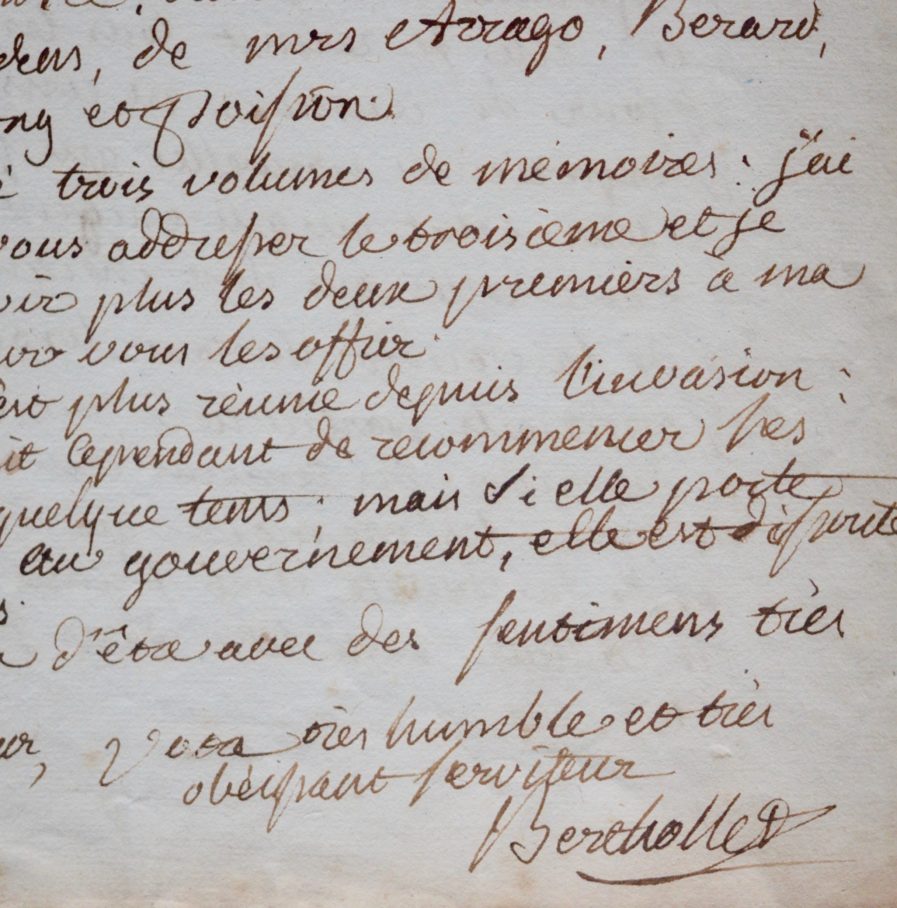 de mrs Arrago, Berard,
ng et Poisson.
trois volumes de mémoires : j'ai
vous addresser le troisieme et je
plus les deux premiers à ma
vous les offrir.
plus réunie depuis l'invasion :
it cependant de recommencer ses
quelque tems ; mais si elle porte
au gouvernement, elle est
d'être avec des sentimens très
ur, Votre très humble et très
obéissant serviteur
Berthollet